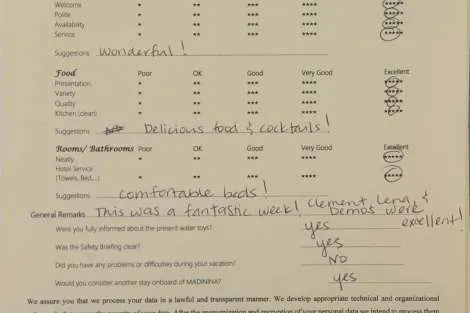 Welcome * ** *** **** *****
Polite * ** *** **** *****
Availability * ** *** **** *****
Service * ** *** **** *****
Suggestions Wonderful!
Food Poor OK Good Very Good Excellent
Presentation * ** *** **** *****
Variety * ** *** **** *****
Quality * ** *** **** *****
Kitchen (clean) * ** *** **** *****
Suggestions Delicious food & cocktails!
Rooms/ Bathrooms Poor OK Good Very Good Excellent
Neatly * ** *** **** *****
Hotel Service
(Towels, Bed,...) * ** *** **** *****
Suggestions comfortable beds!
General Remarks This was a fantastic week! Clement, Lena, &
Demos were excellent!
Were you fully informed about the present water toys? yes
Was the Safety Briefing clear? yes
Did you have any problems or difficulties during your vacation? NO
Would you consider another stay onboard of MADININA? yes
We assure you that we process your data in a lawful and transparent manner. We develop appropriate technical and organizational